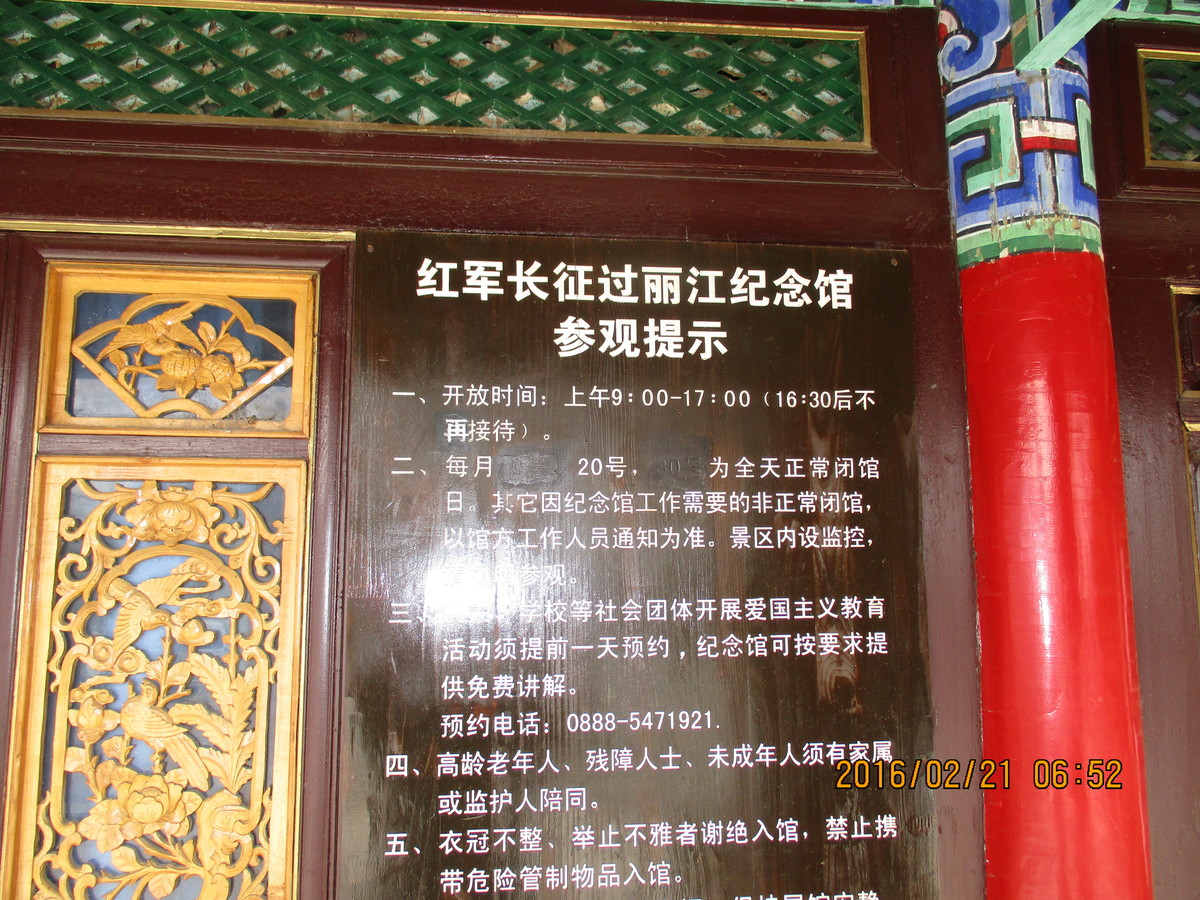 红军长征过丽江纪念馆
参观提示
一、开放时间：上午9：00-17：00（16:30后不
再接待）。
二、每月 20号， 为全天正常闭馆
日。其它因纪念馆工作需要的非正常闭馆，
以馆方工作人员通知为准。景区内设监控，
参观。
三、 学校等社会团体开展爱国主义教育
活动须提前一天预约，纪念馆可按要求提
供免费讲解。
预约电话：0888-5471921.
四、高龄老年人、残障人士、未成年人须有家属
或监护人陪同。
五、衣冠不整、举止不雅者谢绝入馆，禁止携
带危险管制物品入馆。
2016/02/21 06:52